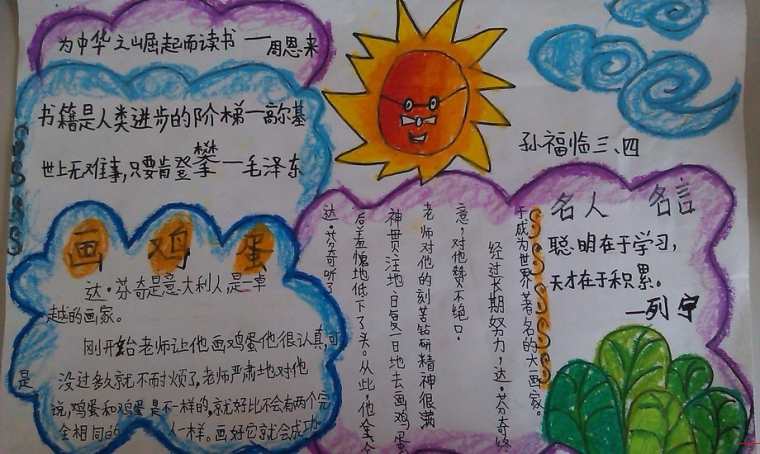 为中华之崛起而读书一周恩来
书籍是人类进步的阶梯一高尔基
世上无难事,只要肯登攀一毛泽东
孙福临三、四
画鸡蛋
达·芬奇是意大利人是一卓
越的画家。
刚开始老师让他画鸡蛋他很认真,可
是
没过多久就不耐烦了,老师严肃地对他
说,鸡蛋和鸡蛋是不一样的,就好比不会有两个完
全相同的人一样。画好它就会成功
达·芬奇听了
后羞愧地低下了头。从此,他全
神贯注地日复一日地去画鸡蛋
老师对他的刻苦钻研精神很满
意,对他赞不绝口。
经过长期努力,达·芬奇终
于成为世界著名的大画家。
名人名言
聪明在于学习,
天才在于积累。
一列宁